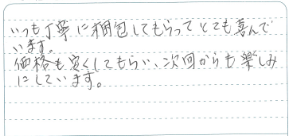 いつも丁寧に梱包してもらってとても喜んで
います。
価格も安くしてもらい、次回からも楽しみ
にしています。